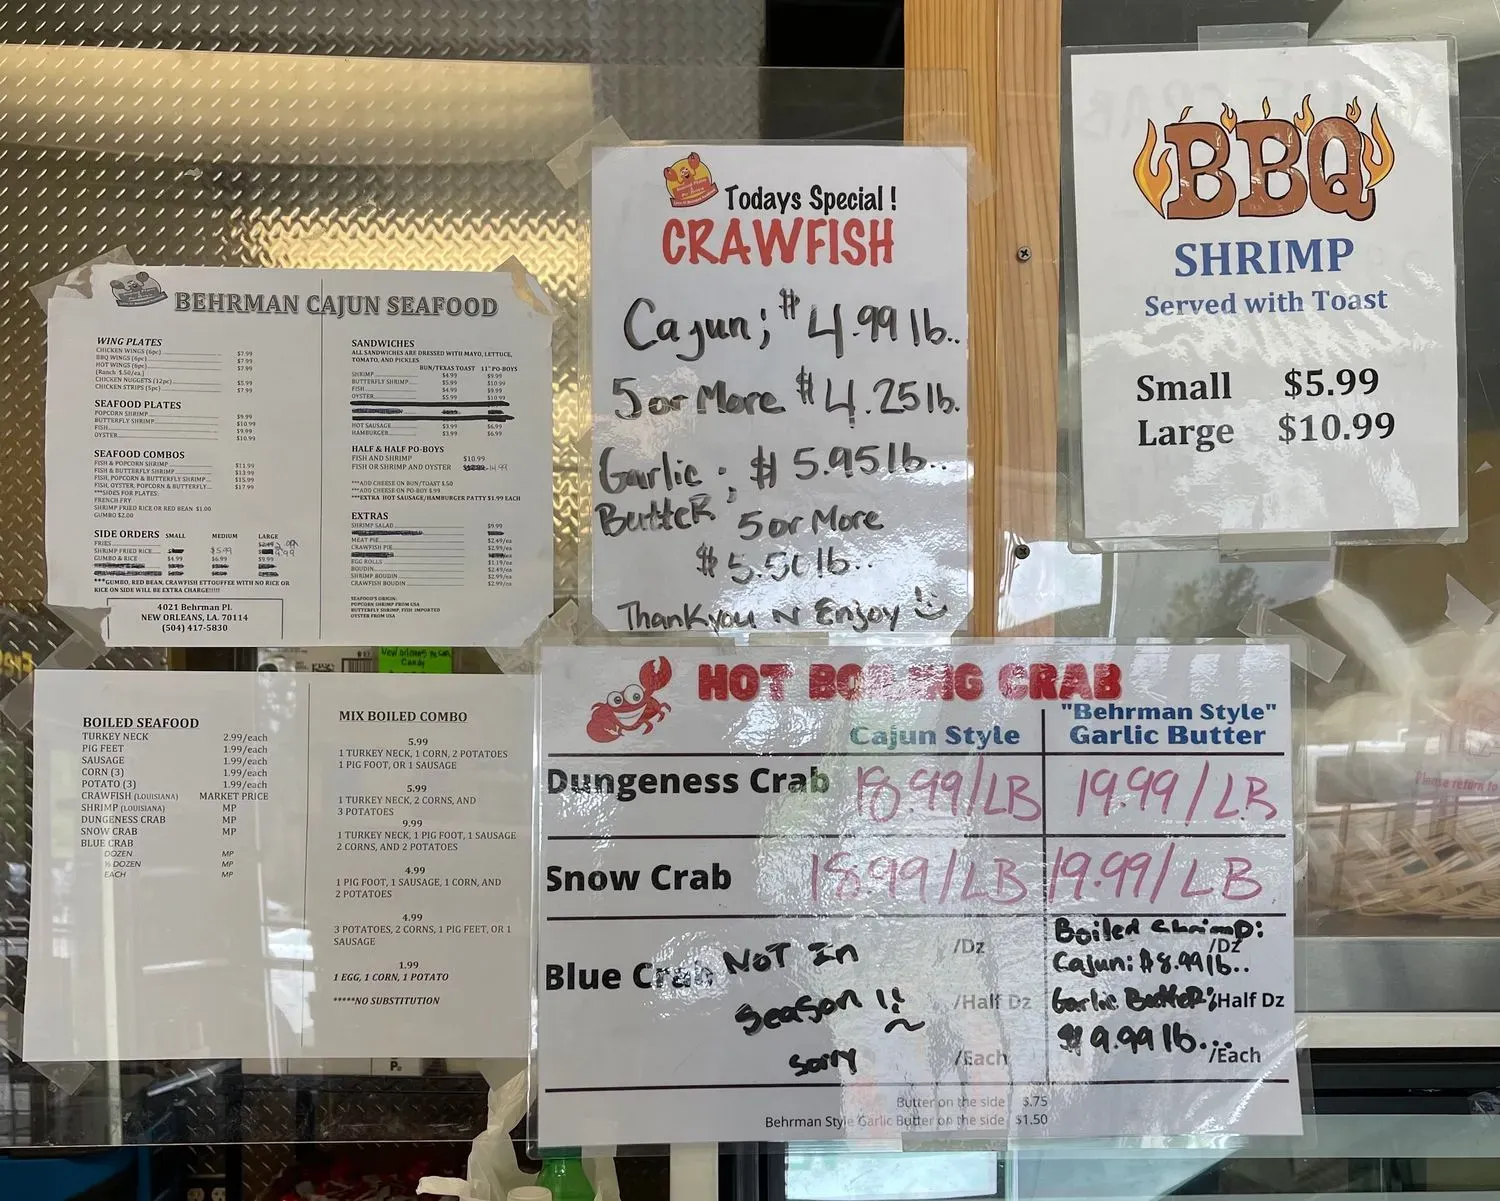 BEHRMAN CAJUN SEAFOOD
WING PLATES
CHICKEN WINGS (6pc) $7.99
BBQ WINGS (6pc) $7.99
HOT WINGS (6pc) $7.99
(Ranch $.50/ea.)
CHICKEN NUGGETS (12pc) $5.99
CHICKEN STRIPS (5pc) $7.99
SEAFOOD PLATES
POPCORN SHRIMP $9.99
BUTTERFLY SHRIMP $10.99
FISH $9.99
OYSTER $10.99
SEAFOOD COMBOS
FISH & POPCORN SHRIMP $11.99
FISH & BUTTERFLY SHRIMP $13.99
FISH, POPCORN & BUTTERFLY SHRIMP $15.99
FISH, OYSTER, POPCORN & BUTTERFLY $17.99
***SIDES FOR PLATES:
FRENCH FRY
SHRIMP FRIED RICE OR RED BEAN $1.00
GUMBO $2.00
SIDE ORDERS SMALL MEDIUM LARGE
FRIES
SHRIMP FRIED RICE $5.99
GUMBO & RICE $4.99 $6.99 $9.99
***GUMBO, RED BEAN, CRAWFISH ETTOUFFEE WITH NO RICE OR
RICE ON SIDE WILL BE EXTRA CHARGE!!!!!
4021 Behrman Pl.
NEW ORLEANS, LA. 70114
(504) 417-5830
SANDWICHES
ALL SANDWICHES ARE DRESSED WITH MAYO, LETTUCE,
TOMATO, AND PICKLES
BUN/TEXAS TOAST 11" PO-BOYS
SHRIMP $4.99 $9.99
BUTTERFLY SHRIMP $5.99 $10.99
FISH $4.99 $9.99
OYSTER $5.99 $10.99
HOT SAUSAGE $3.99 $6.99
HAMBURGER $3.99 $6.99
HALF & HALF PO-BOYS
FISH AND SHRIMP $10.99
FISH OR SHRIMP AND OYSTER 14.99
***ADD CHEESE ON BUN/TOAST $.50
***ADD CHEESE ON PO-BOY $.99
***EXTRA HOT SAUSAGE/HAMBURGER PATTY $1.99 EACH
EXTRAS
SHRIMP SALAD $9.99
MEAT PIE $2.49/ea
CRAWFISH PIE $2.99/ea
EGG ROLLS $1.19/ea
BOUDIN $2.49/ea
SHRIMP BOUDIN $2.99/ea
CRAWFISH BOUDIN $2.99/ea
SEAFOOD'S ORIGIN:
POPCORN SHRIMP FROM USA
BUTTERFLY SHRIMP, FISH IMPORTED
OYSTER FROM USA
Todays Special !
CRAWFISH
Cajun; $4.99 lb..
5 or More $4.25 lb.
Garlic ; $5.95 lb..
Butter 5 or More
$5.50 lb..
Thank you N Enjoy
BBQ
SHRIMP
Served with Toast
Small $5.99
Large $10.99
BOILED SEAFOOD
TURKEY NECK 2.99/each
PIG FEET 1.99/each
SAUSAGE 1.99/each
CORN (3) 1.99/each
POTATO (3) 1.99/each
CRAWFISH (LOUISIANA) MARKET PRICE
SHRIMP (LOUISIANA) MP
DUNGENESS CRAB MP
SNOW CRAB MP
BLUE CRAB
DOZEN MP
½ DOZEN MP
EACH MP
MIX BOILED COMBO
5.99
1 TURKEY NECK, 1 CORN, 2 POTATOES
1 PIG FOOT, OR 1 SAUSAGE
5.99
1 TURKEY NECK, 2 CORNS, AND
3 POTATOES
9.99
1 TURKEY NECK, 1 PIG FOOT, 1 SAUSAGE
2 CORNS, AND 2 POTATOES
4.99
1 PIG FOOT, 1 SAUSAGE, 1 CORN, AND
2 POTATOES
4.99
3 POTATOES, 2 CORNS, 1 PIG FEET, OR 1
SAUSAGE
1.99
1 EGG, 1 CORN, 1 POTATO
*****NO SUBSTITUTION
HOT BOILING CRAB
Cajun Style "Behrman Style" Garlic Butter
Dungeness Crab 18.99/LB 19.99/LB
Snow Crab 18.99/LB 19.99/LB
Blue Crab NOT In Season !! Sorry
/Dz
/Half Dz
/Each
Boiled Shrimp:
/Dz
Cajun: $8.99 lb..
Garlic Butter: /Half Dz
$9.99 lb...
/Each
Butter on the side $.75
Behrman Style Garlic Butter on the side $1.50
Please return to